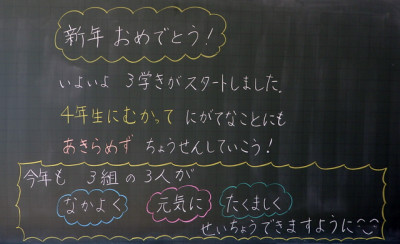 新年 おめでとう!
いよいよ 3学きがスタートしました.
4年生にむかって にがてなことにも
あきらめず ちょうせんしていこう!
今年も 3組の3人が
なかよく 元気に たくましく
せいちょうできますように